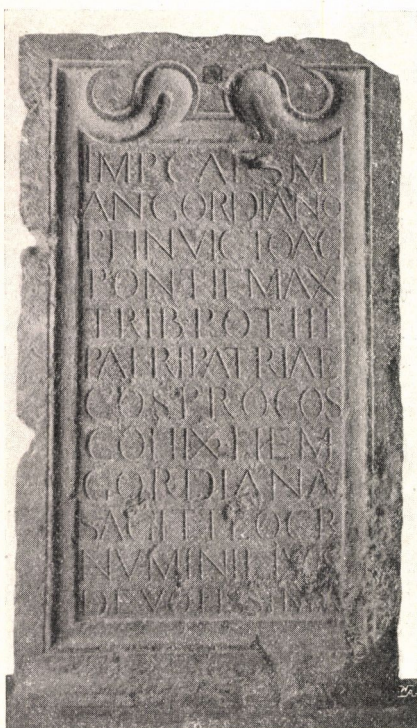 IMP CAES M
ANT GORDIANO
P F INVICTO AG
PONTIF MAX
TRIB POT III
PATRI PATRIAE
COS PROCOS
COH IX HEM
GORDIANA
SAGITT
NVMINI
DEVOTISSIMA